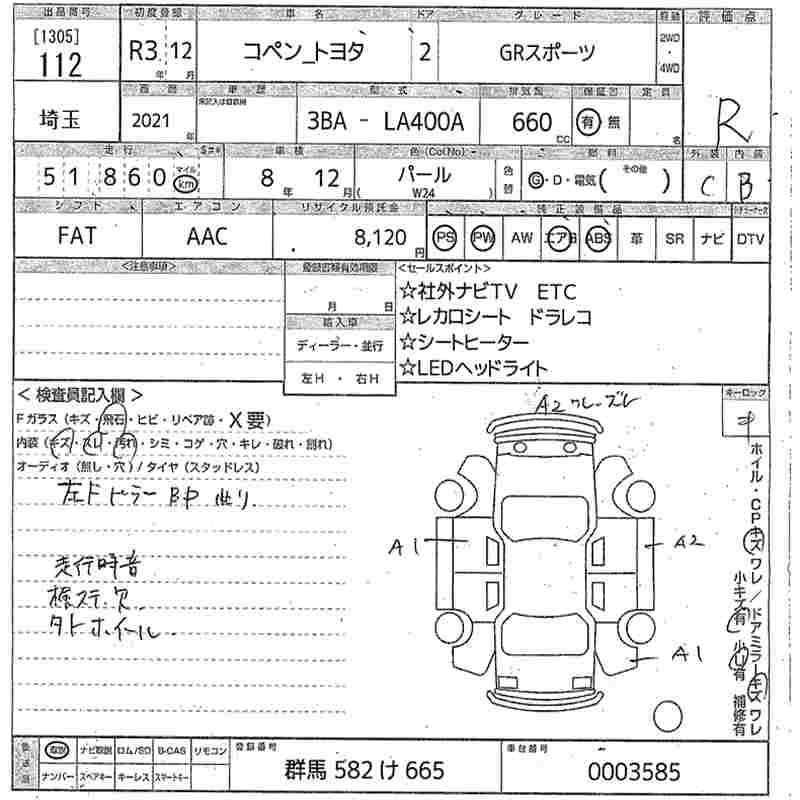 出品番号 初度登録 車名 ドア グレード 駆動 評価点
[1305]
112 R3 12 コペン_トヨタ 2 GRスポーツ 2WD・4WD R
年 月
西暦 車歴 型式 排気量 保証書 定員
埼玉 2021 年 3BA - LA400A 660 CC 有 無 名
走行 車検 色(Col No) 色替 燃料 外装 内装
51,860 マイル km 8 年 12 月 パール (W24) G・D・電気 (その他) C B
シフト エアコン リサイクル預託金 純正装備品
FAT AAC 8,120 円 PS PW AW エアB ABS 革 SR ナビ DTV
<注意事項> <セールスポイント>
月 日
輸入車
ディーラー・並行
左H ・ 右H
☆社外ナビTV ETC
☆レカロシート ドラレコ
☆シートヒーター
☆LEDヘッドライト
<検査員記入欄> キーロック
Fガラス(キズ・飛石・ヒビ・リペア跡・X要)
内装(キズ・スレ・汚れ・シミ・コゲ・穴・キレ・破れ・割れ)
オーディオ(無し・穴)/タイヤ(スタッドレス)
走行時音
検ステ欠
タトホイール
A1
A2
A1
ホイル・CPキズワレ/ドアミラーキズワレ
小キズ有 小U有 補修有
取説 ナビ取説 ロム/SD B-CAS リモコン 登録番号 車台番号
ナンバー スペアキー キーレス スマートキー 群馬 582 け 665 0003585